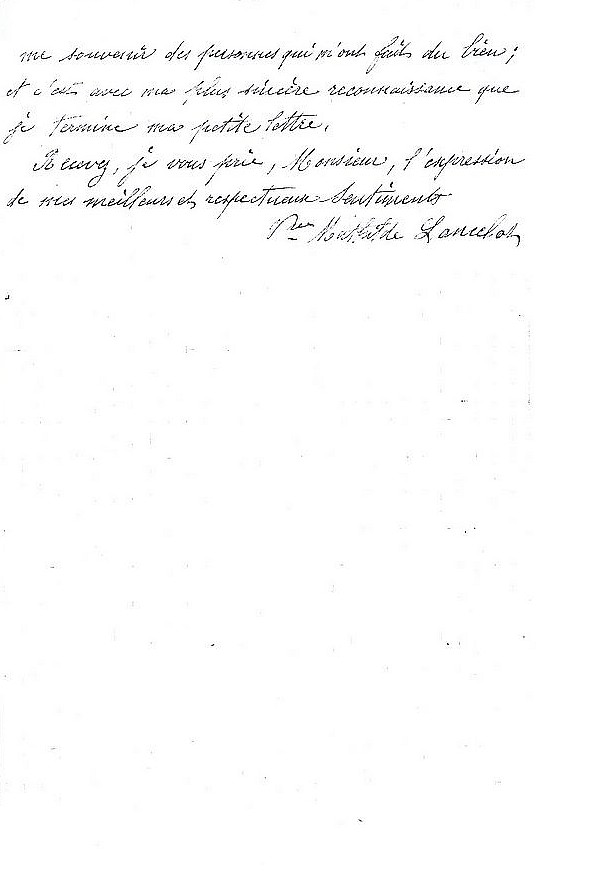 me souvenir des personnes qui m'ont fait du bien;
et c'est avec ma plus sincère reconnaissance que
je termine ma petite lettre.
Recevez, je vous prie, Monsieur, l'expression
de mes meilleurs et respectueux sentiments
Mathilde